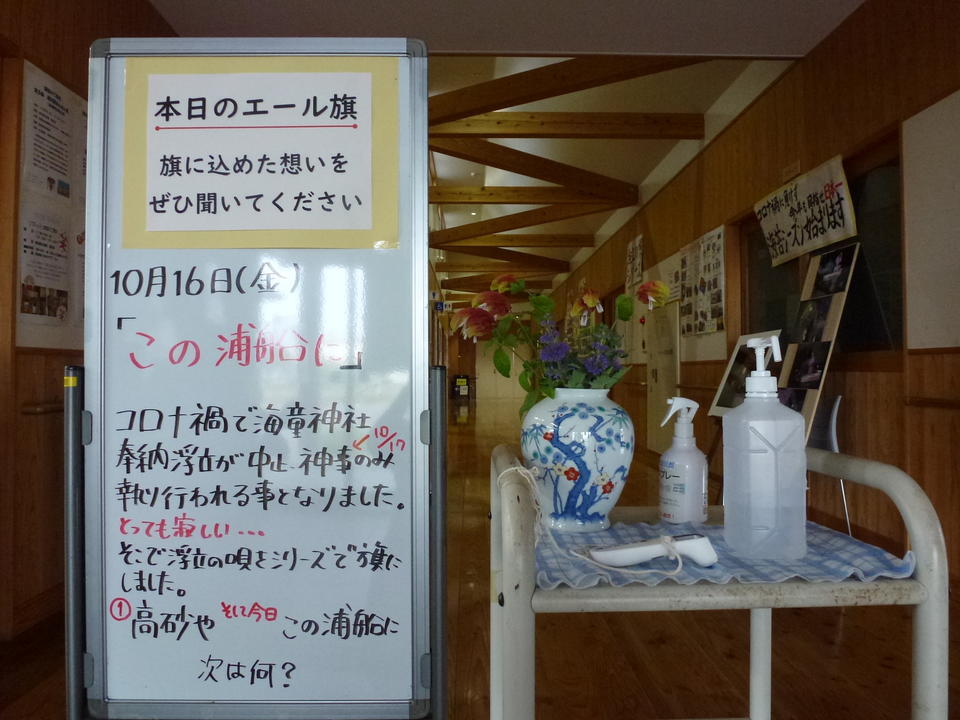 本日のエール旗
旗に込めた想いを
ぜひ聞いてください
10月16日(金)
「この浦船に」
コロナ禍で海童神社
10/17
奉納浮立が中止 神事のみ
執り行われる事となりました。
とっても寂しい・・・
そこで浮立の唄をシリーズで旗に
しました。
①高砂や そして今日 この浦船に
次は何?
コロナ禍に負けず
海苔シーズン始まります